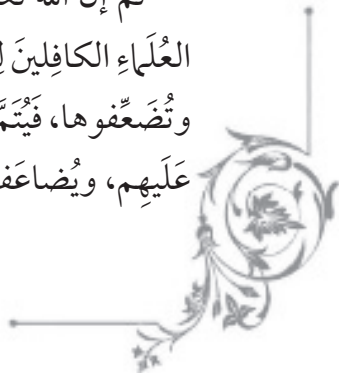 ثم إن الله
العُلَماءِ الكافِلينَ
وتُضَعِّفوها، فَيُتَمَّ
عَلَيهِم، ويُضاعَف